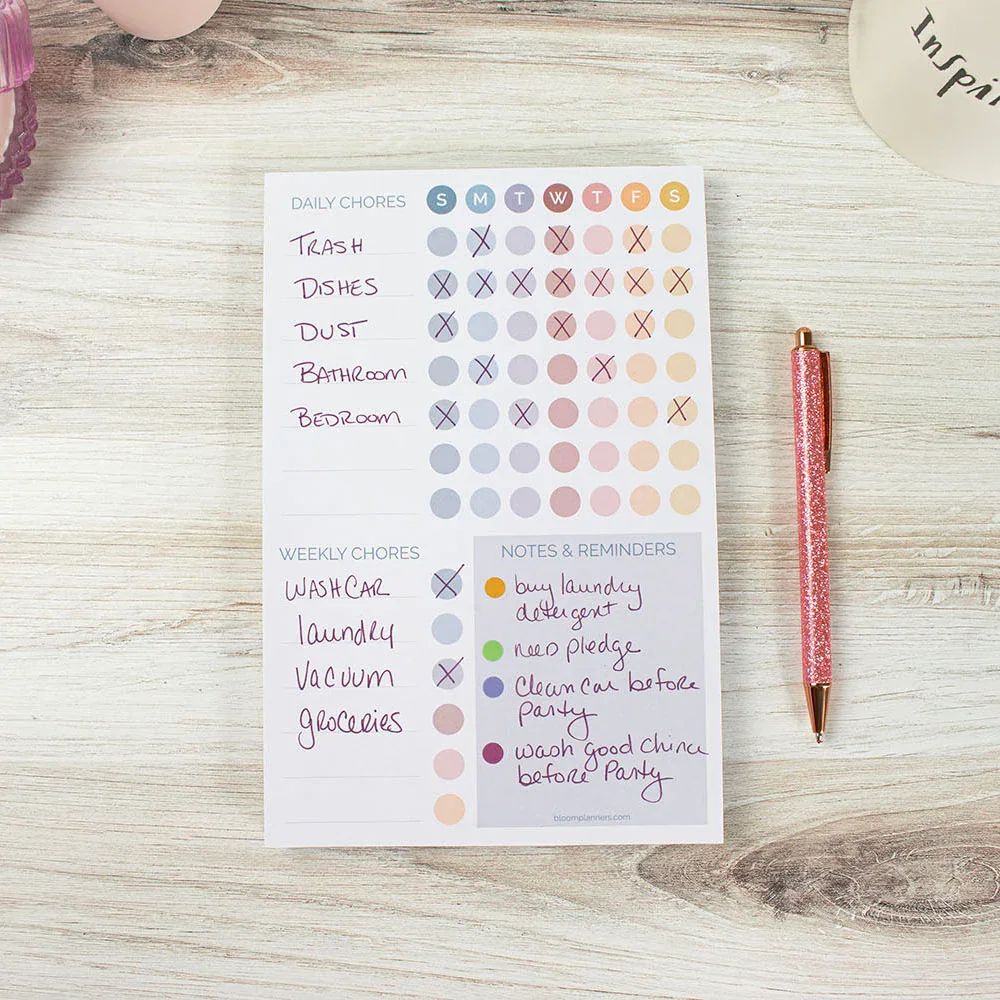 Inspir
DAILY CHORES S M T W T F S
TRASH X X X
DISHES X X X X X X X
DUST X X X
BATHROOM X X
BEDROOM X X X
WEEKLY CHORES
WASH CAR X
laundry
Vacuum X
groceries
NOTES & REMINDERS
buy laundry
detergent
need pledge
Clean Car before
Party
wash good China
before Party
bloomplanners.com